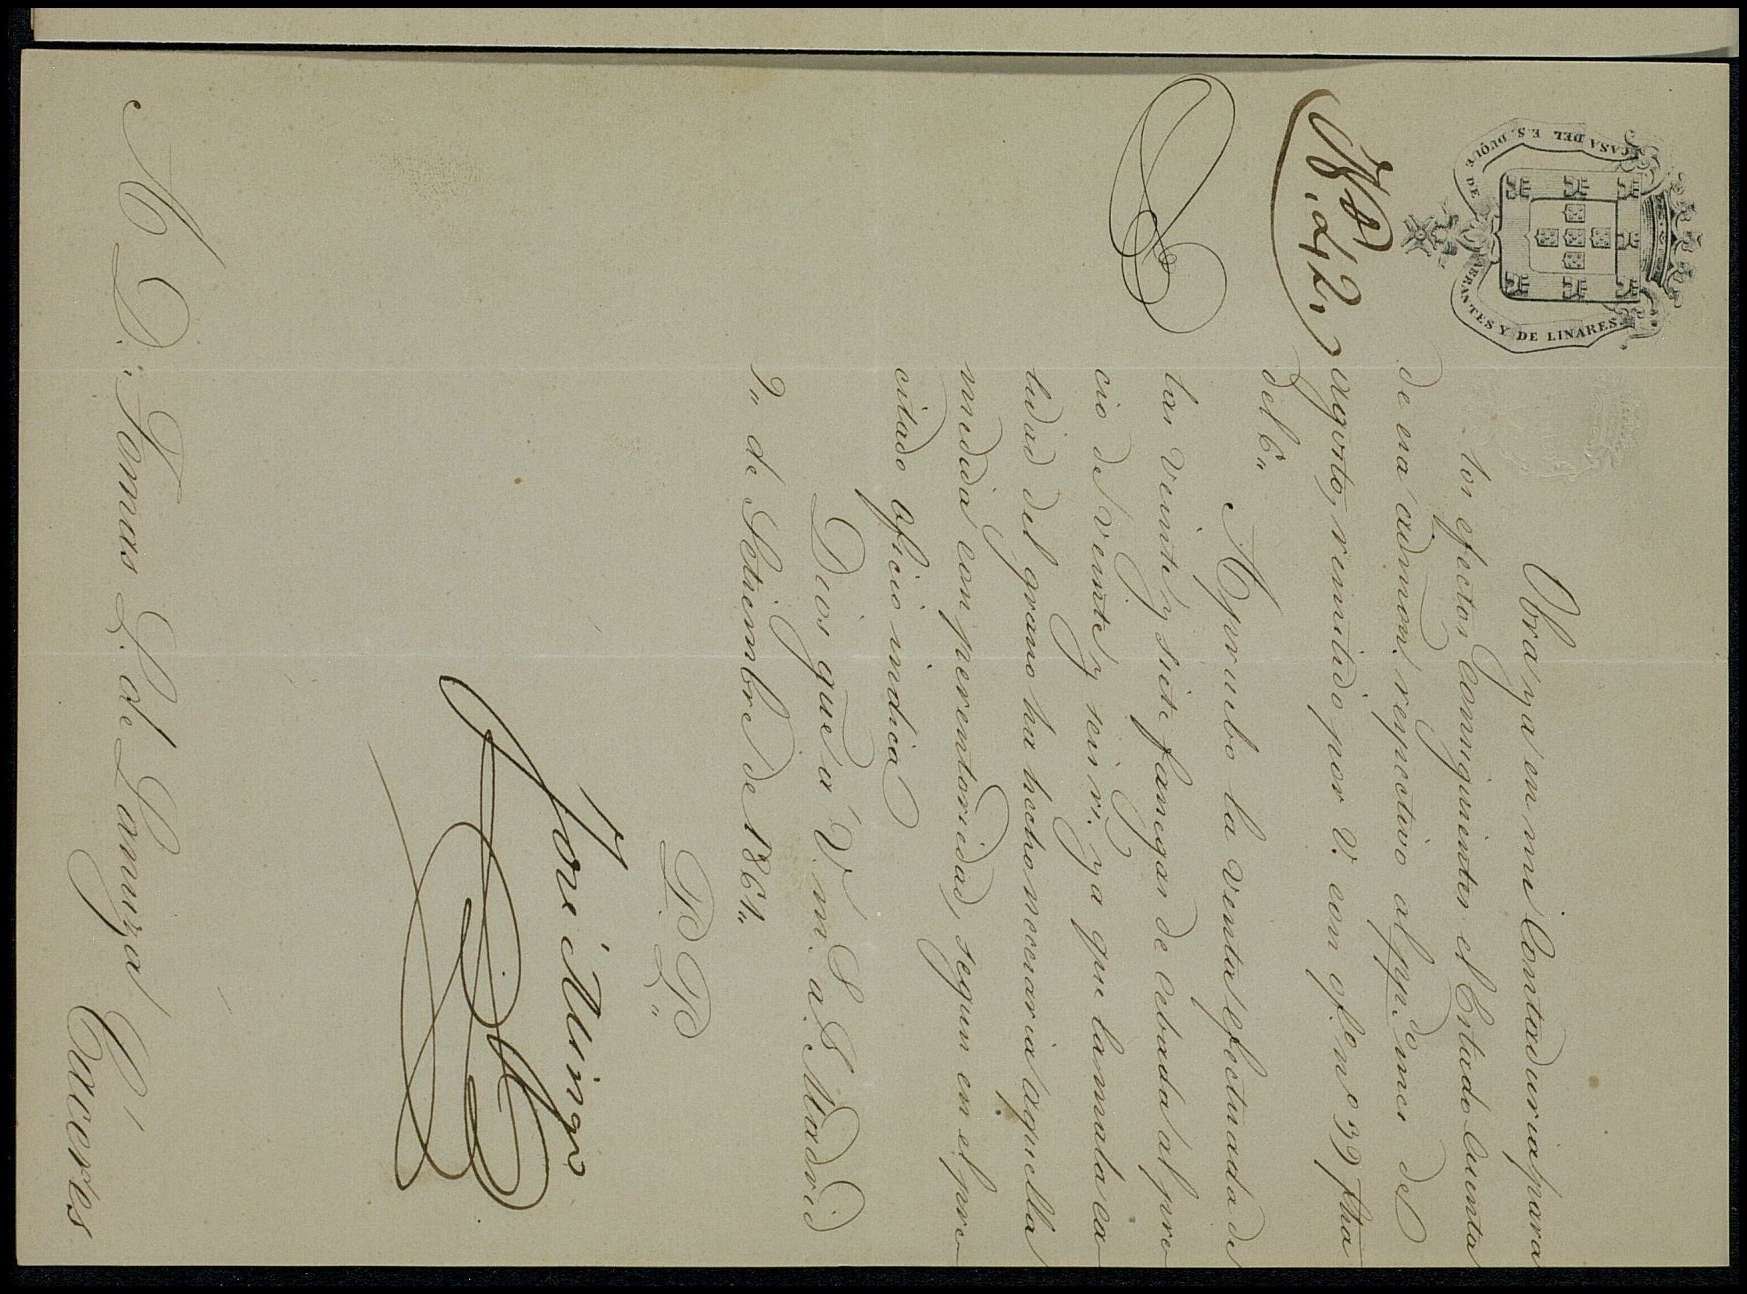 CASA DEL E.S. DUQUE DE ABRANTES Y DE LINARES.
N.º 42,,
Obra ya en mi Contaduria para
los efectos consiguientes el Estado Cuenta
de esa admon. respectivo al pp.do mes del
agosto, remitido por V. con of.º n.º 39 fha
del 6,,
Apruebo la venta efectuada de
las veinte y siete fanegas de cebada al pre
cio de veinte y seis r.s ya que la mala ca
lidad del grano ha hecho necesaria aquella
medida con perentoriedad, segun en el pre
citado oficio indica
Dios gue a V. m. a.s Madrid
de Setiembre de 1861,,
P. P.
José Mingo
A D. Tomas L. de Lanuza Caceres